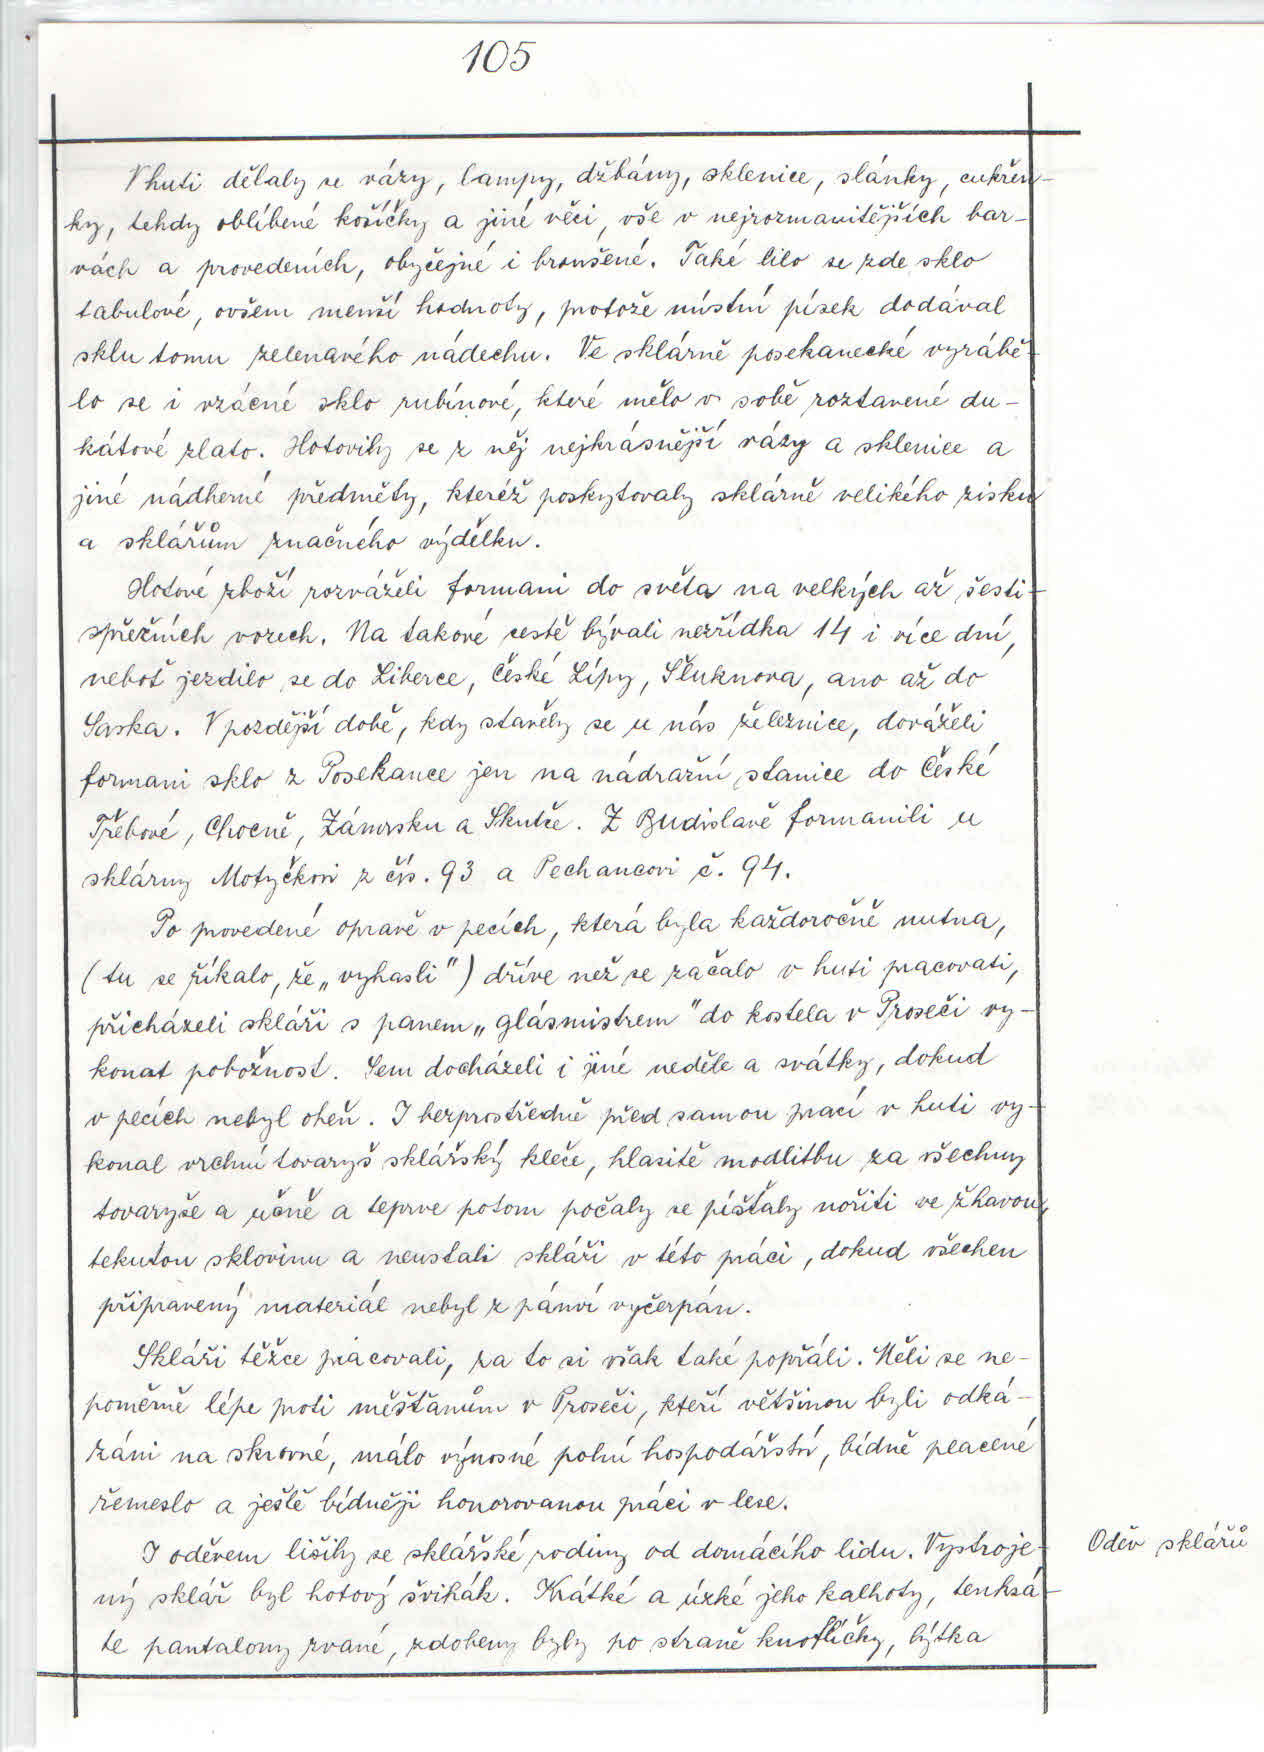 105
V huti dělaly se vázy, lampy, džbány, sklenice, slánky, cukřen-
ky, tehdy oblíbené košíčky a jiné věci, vše v nejrozmanitějších bar-
vách a provedeních, obyčejné i broušené. Také lilo se zde sklo
tabulové, ovšem menší hodnoty, protože místní písek dodával
sklu tomu zelenavého nádechu. Ve sklárně posekanecké vyrábě-
lo se i vzácné sklo rubínové, které mělo v sobě roztavené du-
kátové zlato. Hotovily se z něj nejkrásnější vázy a sklenice a
jiné nádherné předměty, kteréž poskytovaly sklárně velikého zisku
a sklářům značného výdělku.
Hotové zboží rozváželi formani do světa na velkých až šesti-
spřežních vozech. Na takové cestě bývali nezřídka 14 i více dní,
neboť jezdilo se do Liberce, České Lípy, Šluknova, ano až do
Saska. V pozdější době, kdy stavěly se u nás železnice, dováželi
formani sklo z Posekance jen na nádražní stanice do České
Třebové, Chocně, Zámrsku a Skutče. Z Budislavě formanili u
sklárny Motyčkovi z čís. 93 a Pechancovi č. 94.
Po provedené opravě v pecích, která byla každoročně nutna,
(tu se říkalo, že „vyhasli") dříve než se začalo v huti pracovati,
přicházeli skláři s panem „glásmistrem" do kostela v Proseči vy-
konat pobožnost. Sem docházeli i jiné neděle a svátky, dokud
v pecích nebyl oheň. I bezprostředně před samou prací v huti vy-
konal vrchní tovaryš sklářský kleče, hlasitě modlitbu za všechny
tovaryše a učně a teprve potom počaly se píšťaly nořiti ve žhavou,
tekutou sklovinu a neustali skláři v této práci, dokud všechen
připravený materiál nebyl z pánví vyčerpán.
Skláři těžce pracovali, za to si však také popřáli. Měli se ne-
poměrně lépe proti měšťanům v Proseči, kteří většinou byli odká-
záni na skrovné, málo výnosné polní hospodářství, bídně placené
řemeslo a ještě bídněji honorovanou práci v lese.
I oděvem lišily se sklářské rodiny od domácího lidu. Vystroje-
ný sklář byl hotový švihák. Krátké a úzké jeho kalhoty, tenksá-
te pantalony zvané, zdobeny byly po straně knoflíčky, lýtka
Oděv sklářů